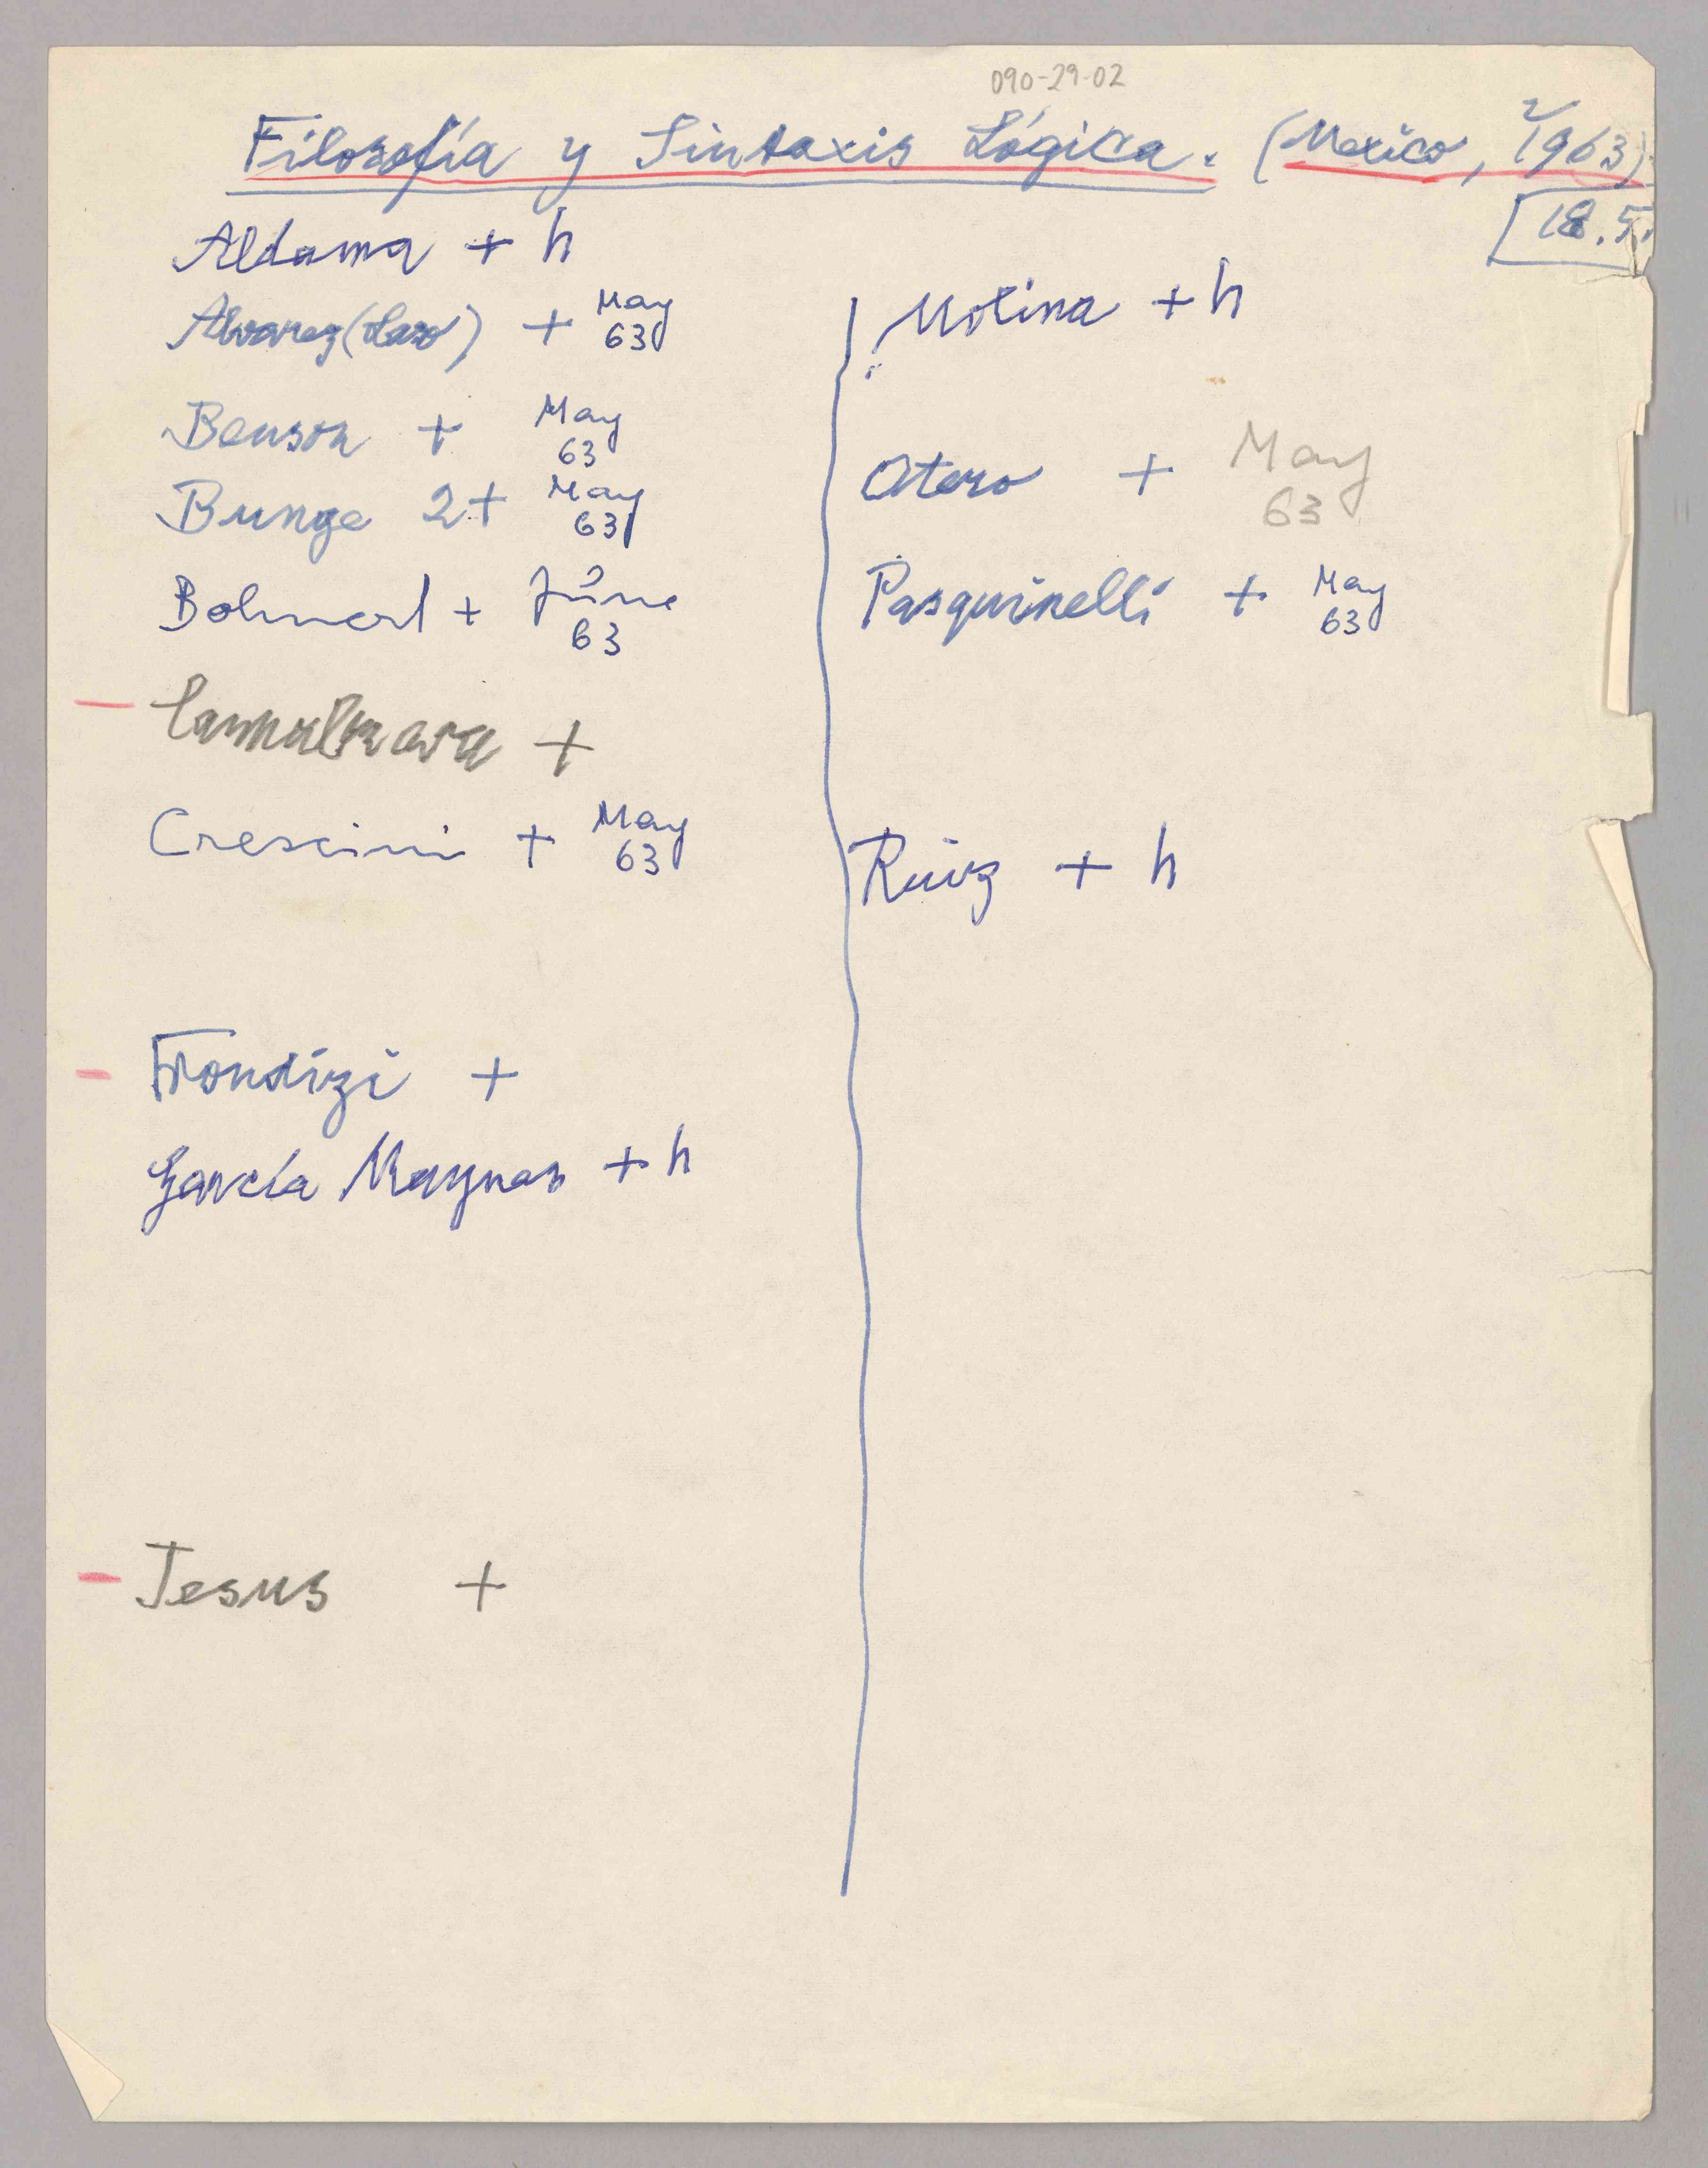 090-29-02
Filosofía y Sintaxis Lógica. (Mexico, 1963)
[18.5.
Aldama + h
Alvarez (Laso) + May 63
Benson + May 63
Bunge 2+ May 63
Bohnert + June 63
- +
Crescini + May 63
- Frondizi +
García Maynez + h
- Jesus +
Molina + h
Otero + May 63
Pasquinelli + May 63
Ruiz + h